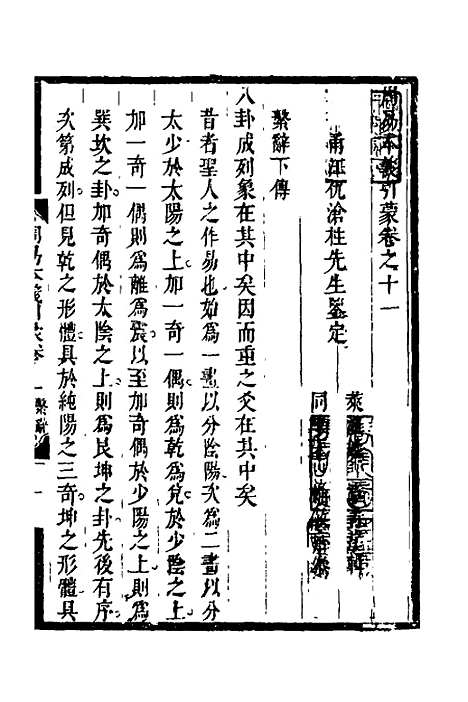 周易本義引蒙卷之十一
甬江仇滄柱先生鑒定
繫辭下傳
八卦成列象在其中矣因而重之爻在其中矣
昔者聖人之作易也始爲一畫以分陰陽次爲二畫以分
太少於太陽之上加一奇一偶則爲乾爲兌於少陰之上
加一奇一偶則爲離爲震以至加奇偶於少陽之上則爲
巽坎之卦加奇偶於太陰之上則爲艮坤之卦先後有序
次第成列但見乾之形體具於純陽之三奇坤之形體具